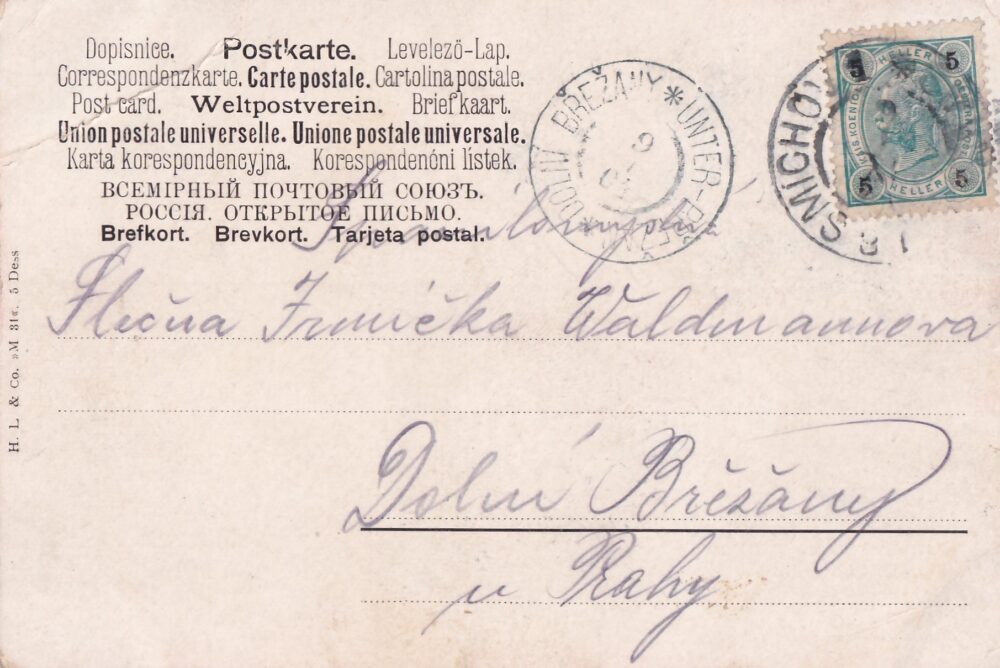 Dopisnice. Postkarte. Levelező-Lap.
Correspondenzkarte. Carte postale. Cartolina postale.
Post card. Weltpostverein. Briefkaart.
Union postale universelle. Unione postale universale.
Karta korespondencyjna. Korespondenčni listek.
ВСЕМІРНЫЙ ПОЧТОВЫЙ СОЮЗЪ.
РОССІЯ. ОТКРЫТОЕ ПИСЬМО.
Brefkort. Brevkort. Tarjeta postal.
DOLNÍ BŘEŽANY * UNTER-BŘEŽAN *
SMICHOV
5 HELLER 5
5 HELLER 5
Slečna Irmička Waldmannova
Dolní Břežany
u Prahy
H. L. & Co.